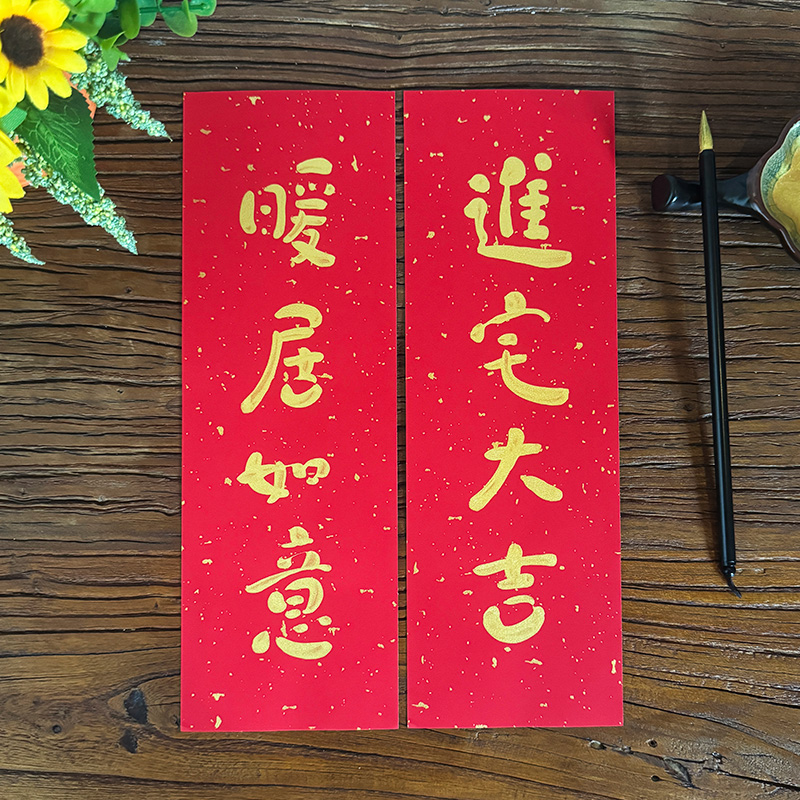 進宅大吉
暖居如意